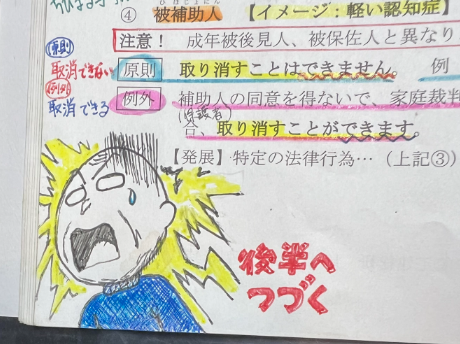 ④ 被補助人 【イメージ：軽い認知症】
注意！ 成年被後見人、被保佐人と異なり
原則
取消できない
原則 取り消すことはできません。 例
例外
取消できる
例外 補助人の同意を得ないで、家庭裁判
(保護者)
合、取り消すことができます。
【発展】特定の法律行為…（上記③）
後半へ
つづく